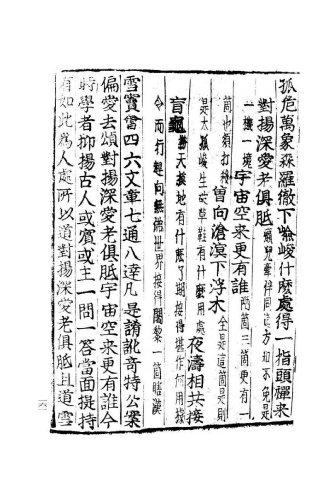 孤危萬象森羅徹下嶮峻什麼處得一指頭禪来
對揚深愛老俱胝癩兒牽伴同道方知不免是
一機一境宇宙空来更有誰兩箇三箇更有一
箇也須打殺曾向滄溟下浮木全是這箇是則
是太孤峻生破草鞋有什麼用處夜濤相共接
盲龜撈天摸地有什麼了期接得堪作何用據
令而行趕向無佛世界接得闍黎一箇瞎漢
雪竇會四六文章七通八達凡是誵訛奇特公案
偏愛去頌對揚深愛老俱胝宇宙空来更有誰今
時學者抑揚古人或賓或主一問一答當面提持
有如此為人處所以道對揚深愛老俱胝且道雪